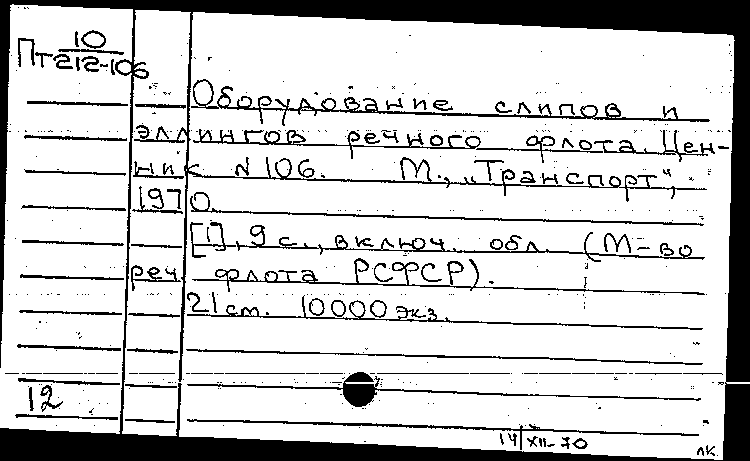 Пт 10/212-106
Оборудование слипов и
эллингов речного флота. Цен-
ник N 106. М., „Транспорт“,
1970.
[1], 9 с., включ. обл. (М-во
реч. флота РСФСР).
21 см. 10000 экз.
12
14/XII-70
лк.